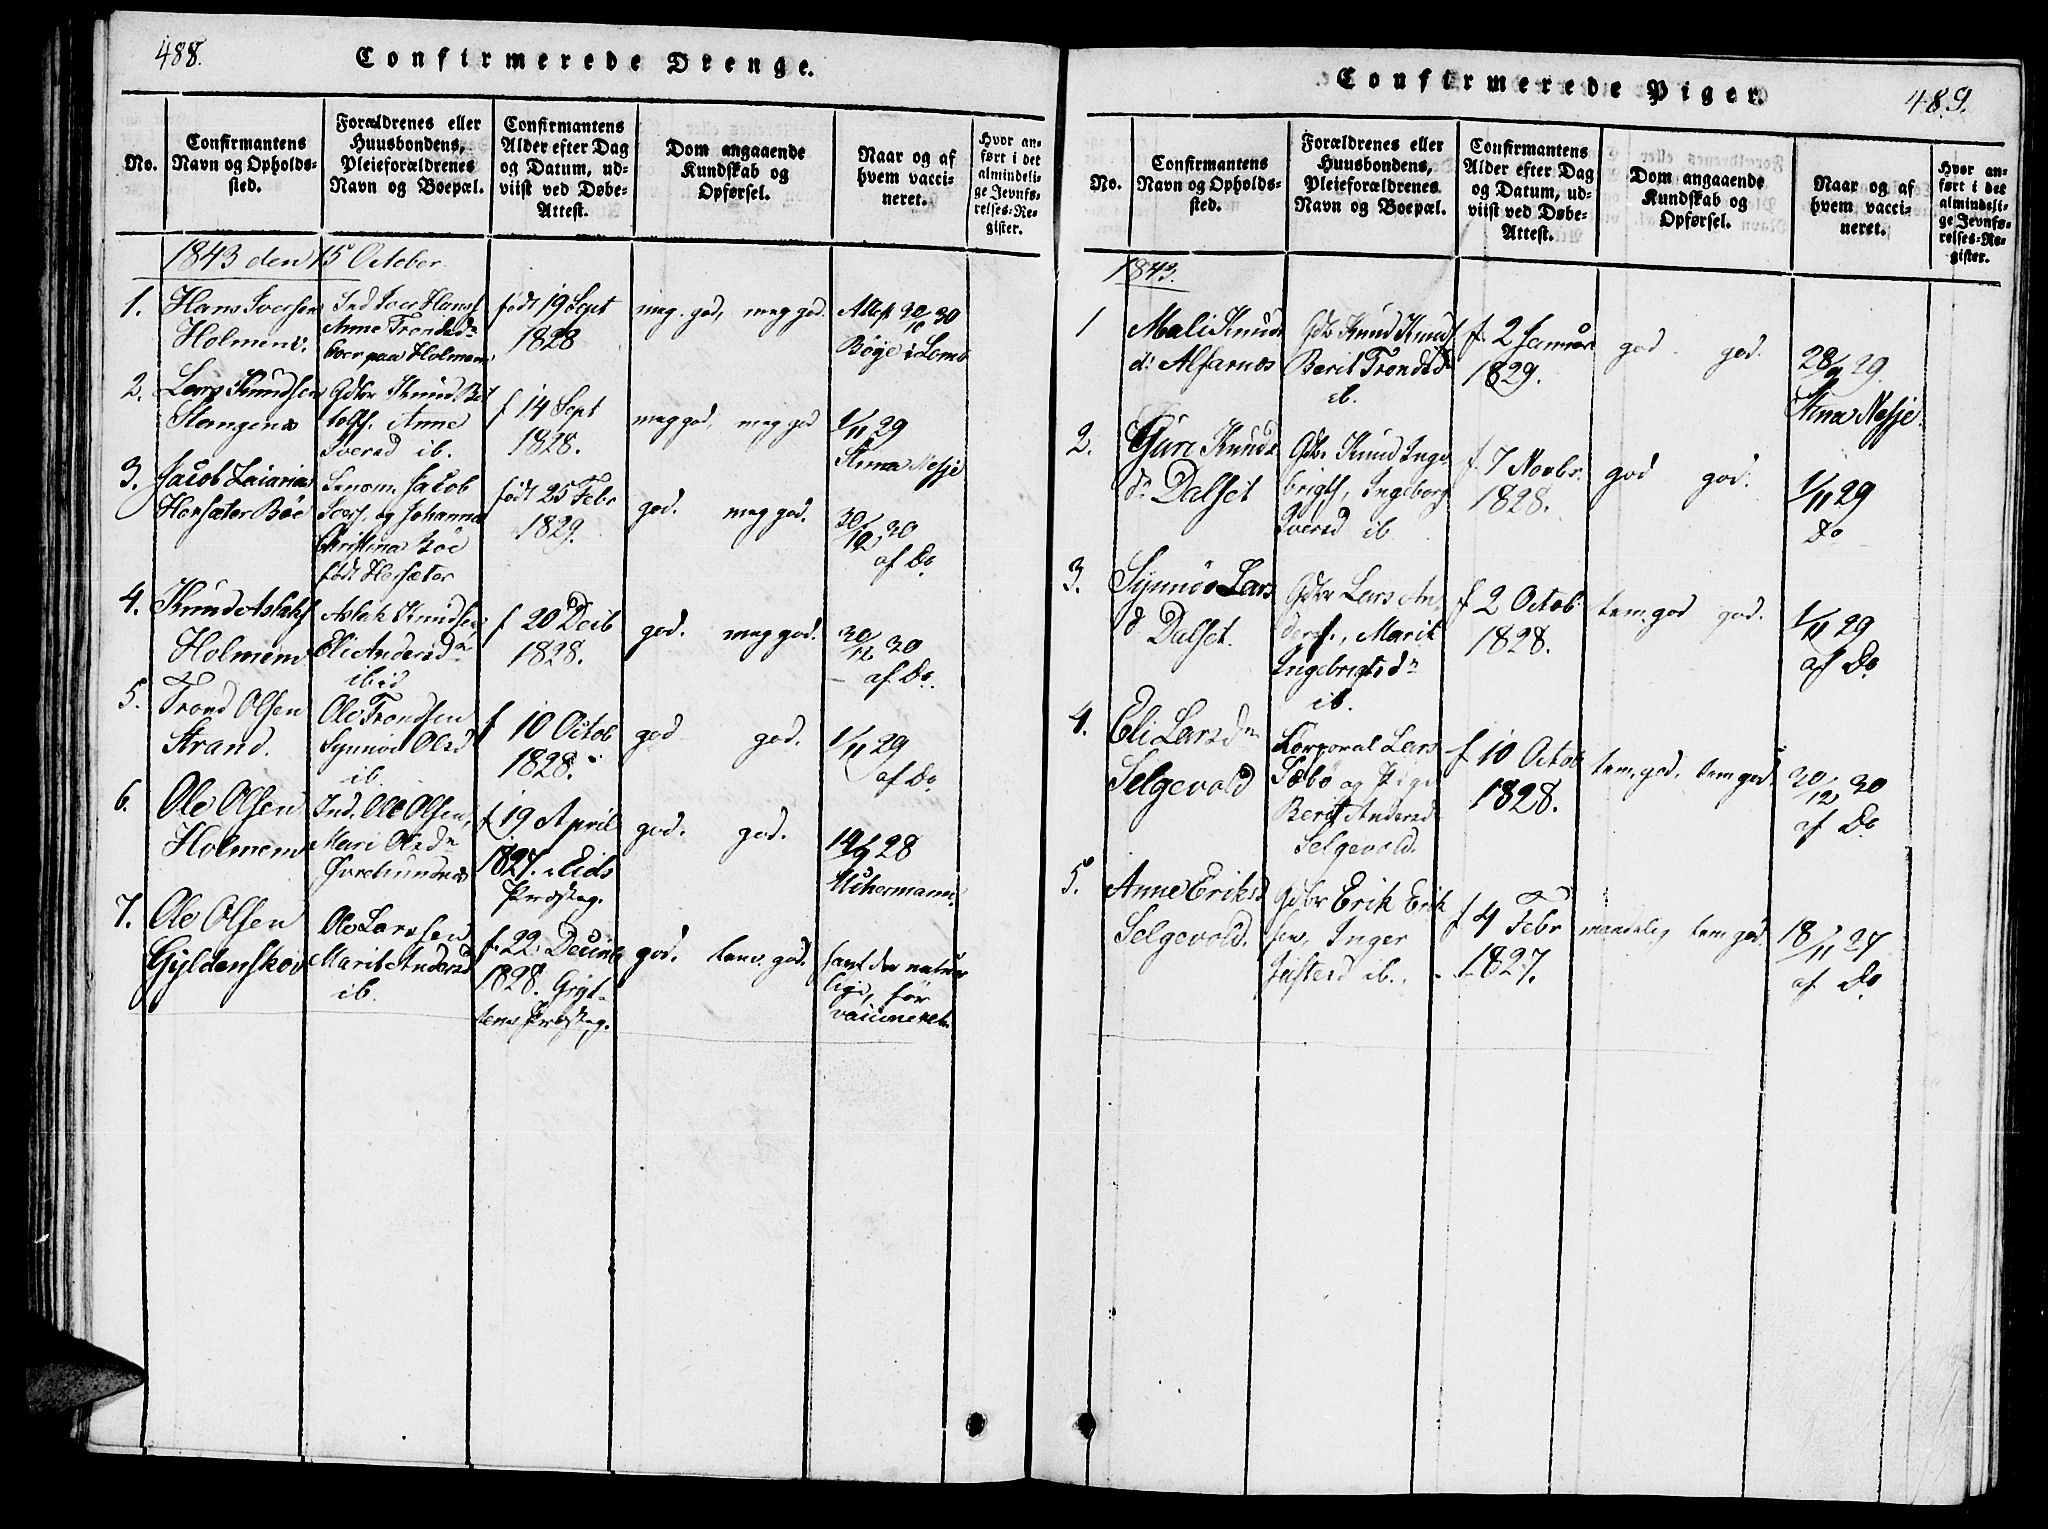 488.
Confirmerede Drenge.
No.
Confirmantens Navn og Opholds-sted.
Forældrenes eller Huusbondens, Pleieforældrenes Navn og Boepæl.
Confirmantens Alder efter Dag og Datum, ud-viist ved Døbe-Attest.
Dom angaaende Kundskab og Opførsel.
Naar og af hvem vacci-neret.
Hvor an-ført i det almindeli-ge Jevnfø-relses-Re-gister.
1843 den 15 October
1. Hans Iversen Holmen. Ind Iver Hans Anne Trondsdr boer paa Holmen født 19 Sept 1828 meg. god, meg god. Attest 30/10 30 Bøge i Lom
2. Lars Knudsen Gdbr Knud Bottolfs. Anne Iversd ib. f 14 Sept 1828. meg god, meg god 1/11 29 Stena Nesje
3. Jacob Zacarias Hersæter Böe Jacob Ivers. og Johanna Christina Böe født Hersæter født 25 Febr 1829. god. meg god. 30/12 30 af Do.
4. Knud Aslaks Holmen Aslak Knudsen Eli Andersdr ibid f 20 Decb 1828. god. meg god. 30/12 30 af Do.
5. Trond Olsen Strand. Ole Trondsen Synnöe Olsd ib. f 10 Octob 1828. god god. 1/11 29 af Do.
6. Ole Olsen Holmen Ind. Ole Olsen, Mari Olsdr f 19 April 1827. i Eids Præsteg. god. god. 14/9 28
7. Ole Olsen Gyldenskov Ole Larssen Marit Andersd ib. f. 22 Decmb 1828. Gryttens Præsteg. god. tem. god. havt de naturlige, før vaccineret.
Confirmerede Piger.
489.
No.
Confirmantens Navn og Opholds-sted.
Forældrenes eller Huusbondens, Pleieforældrenes Navn og Boepæl.
Confirmantens Alder efter Dag og Datum, ud-viist ved Døbe-Attest.
Dom angaaende Kundskab og Opførsel.
Naar og af hvem vacci-neret.
Hvor an-ført i det almindeli-ge Jevnfø-relses-Re-gister.
1843.
1 Mali Knudsdr Alfarnæs Gdbr Knud Knuds Berit Trondsdr ib. f. 2 Januar 1829. god god. 29 Stena Nesje.
2. Guri Knudsdr Dalset Gdbr Knud Ingebrigts, Ingeborg Iversd ib f. 7 Novbr. 1828. god god. 1/11 29 Do
3. Synnöe Larsdr Dalset. Gdbr Lars Anders., Marit Ingebrigtsdr ib. f 2 Octob. 1828. tem. god god. 1/11 29 af Do
4. Eli Larsdr Selgevold Corporal Lars Sæbö og Pige Berit Andersd Selgevold. f 10 Octob 1828. tem. god. tem god. 30/12 30 af Do
5. Anne Eriksd Selgevold. Gdbr Erik Eriksen, Inger ib. f 4 Febr 1827. maadelig tem god. 18/11 27 af Do